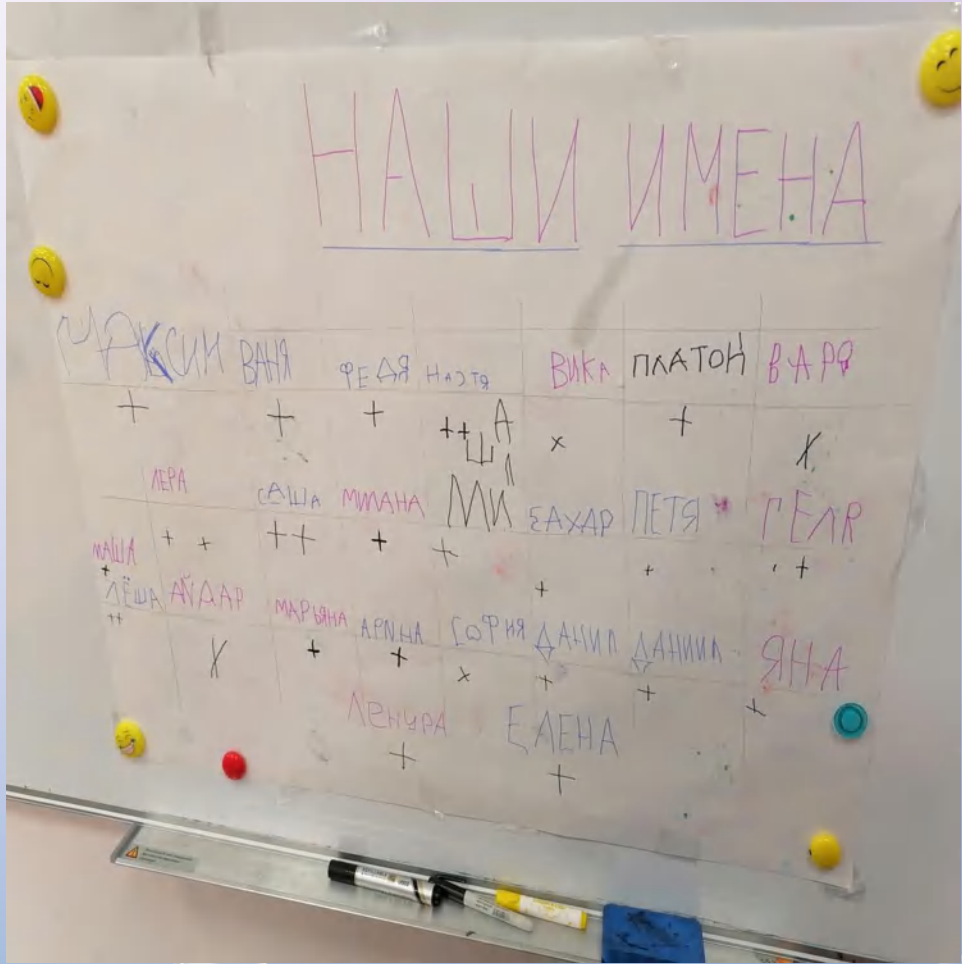 НАШИ ИМЕНА
МАКСИМ ВАНЯ ФЕДЯ НАСТЯ ВИКА ПЛАТОН ВАРЯ
ЛЕРА САША МИЛАНА МИША ЗАХАР ПЕТЯ ГЕЛЯ
МАША
ЛЁША АЙДАР МАРЬЯНА АРИНА СОФИЯ ДАНИЛ ДАНИИЛ ЯНА
ЛЕНУРА ЕЛЕНА